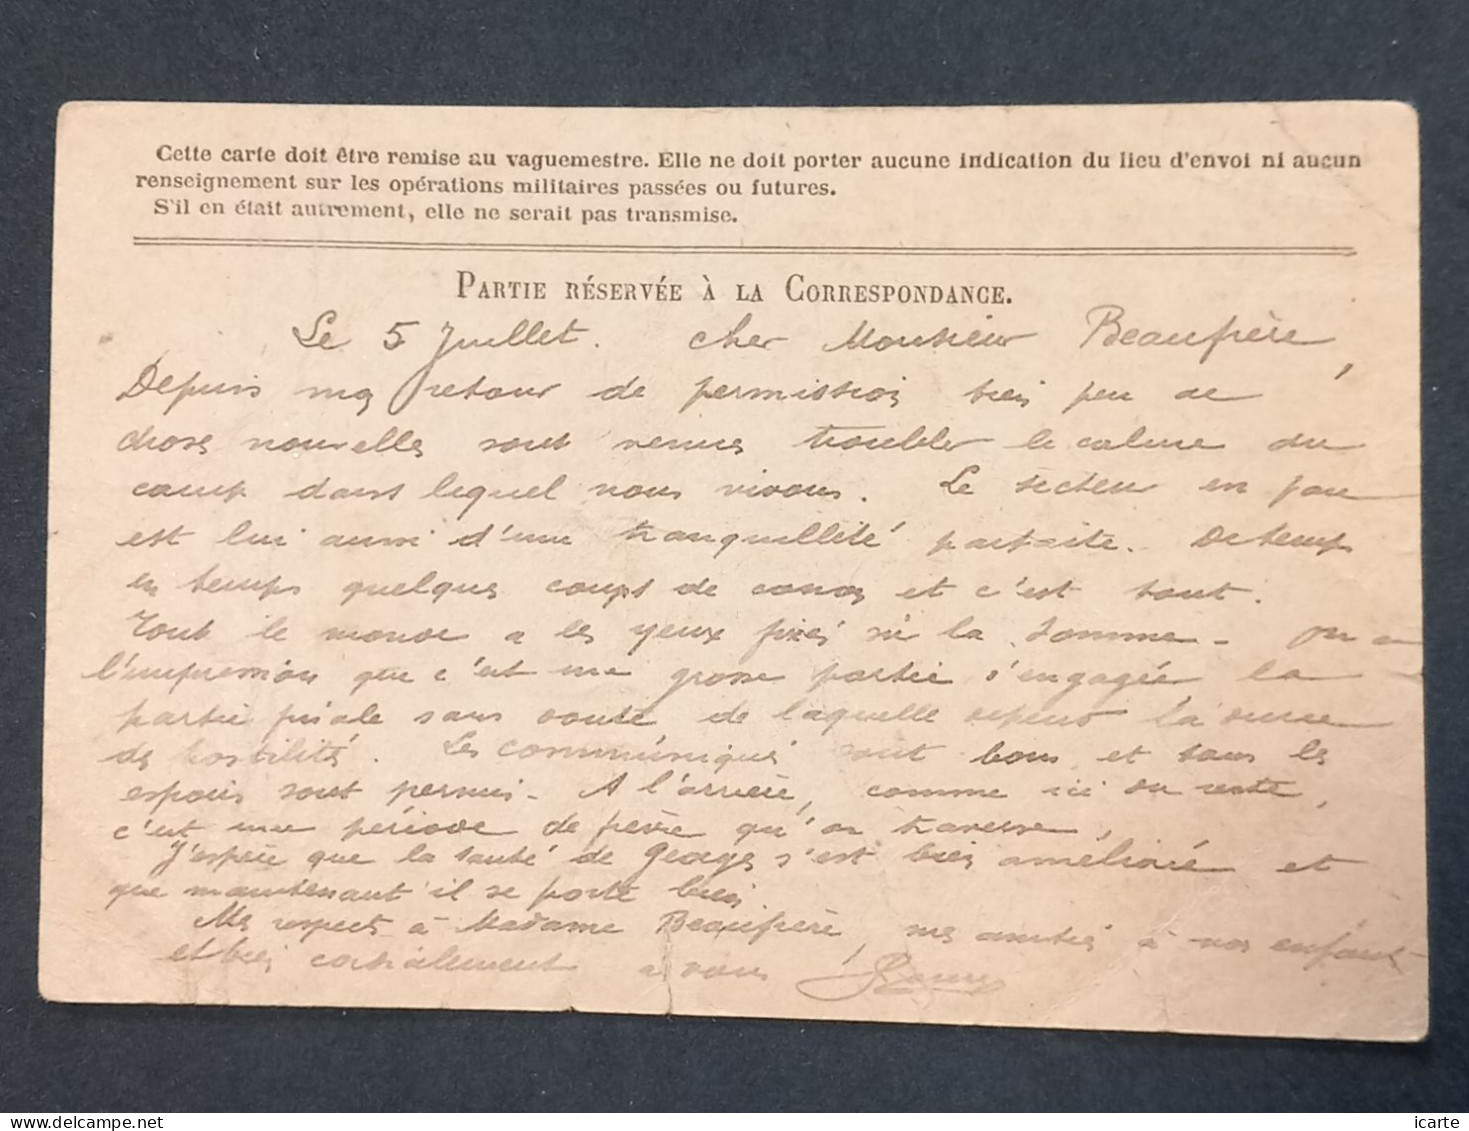 Cette carte doit être remise au vaguemestre. Elle ne doit porter aucune indication du lieu d'envoi ni aucun
renseignement sur les opérations militaires passées ou futures.
S'il en était autrement, elle ne serait pas transmise.
PARTIE RÉSERVÉE À LA CORRESPONDANCE.
Le 5 Juillet. Cher Monsieur Beaufrère,
Depuis mon retour de permission bien peu de
choses nouvelles sont venues troubler le calme du
camp dans lequel nous vivons. Le secteur en
est lui aussi d'une tranquillité parfaite. De temps
en temps quelques coups de canon et c'est tout.
Tout le monde a les yeux fixés sur la Somme - On a
l'impression que c'est une grosse partie s'engagée la
partie finale sans doute de laquelle dépend la durée
des hostilités. Les communiqués sont bons et tous les
espoirs sont permis - A l'arrière, comme ici du reste,
c'est une période de fièvre qu'on traverse,
J'espère que la santé de Georges s'est bien améliorée et
que maintenant il se porte bien.
Mes respects à Madame Beaufrère, mes amitiés à vos enfants
et bien cordialement à vous
icarte